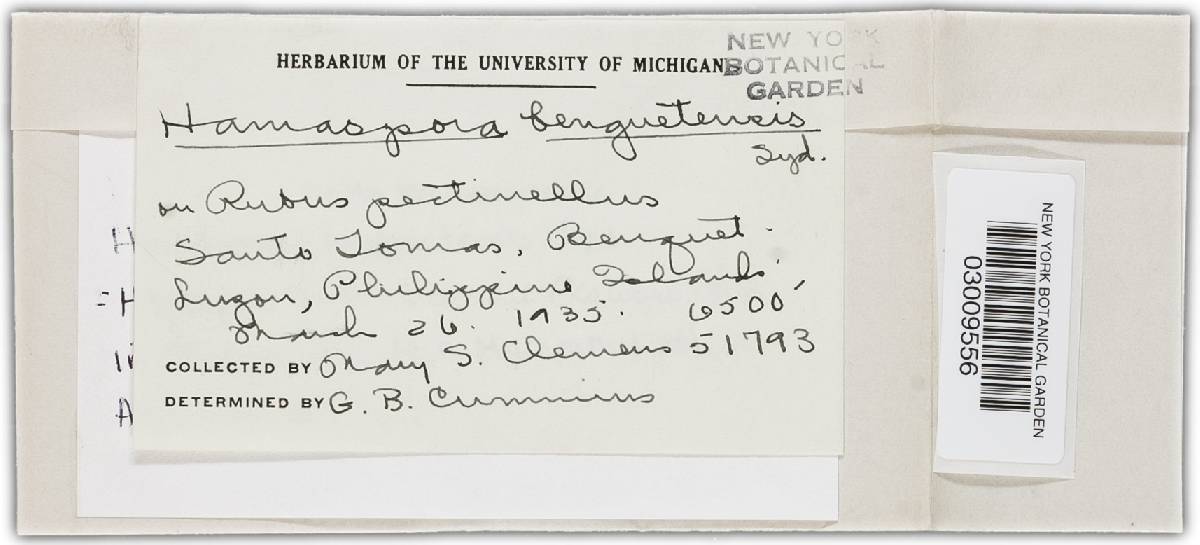 HERBARIUM OF THE UNIVERSITY OF MICHIGAN
NEW YORK
BOTANICAL
GARDEN
Hamaspora benguetensis
Syd.
on Rubus pectinellus
Santo Tomas, Benguet.
Luzon, Philippine Islands,
March 26. 1935. 6500'
COLLECTED BY Mary S. Clemens 51793
DETERMINED BY G. B. Cummins
H
=H
A
NEW YORK BOTANICAL GARDEN
03009556